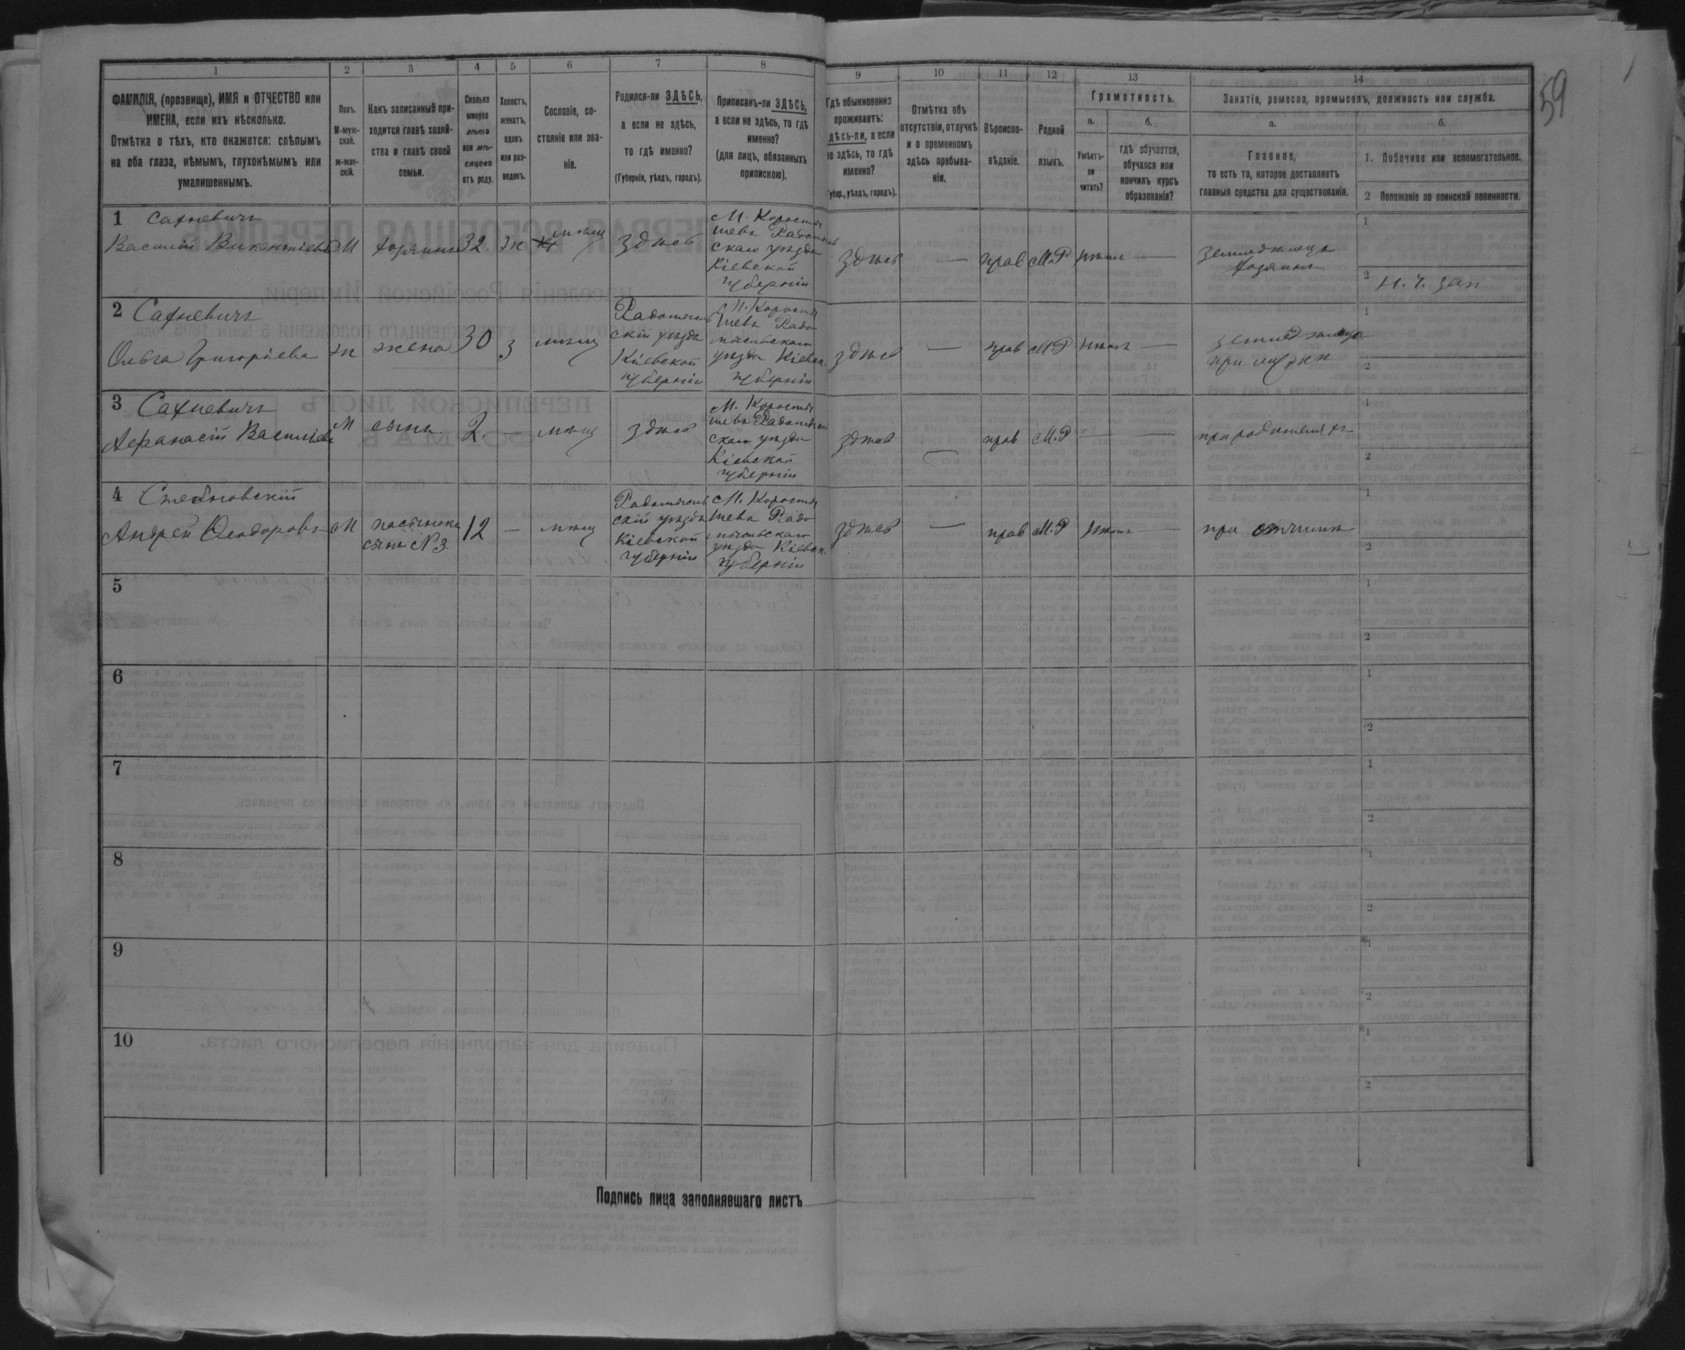 59
1
2
3
4
5
6
7
8
9
10
11
12
13
14
ФАМИЛІЯ, (прозвище), ИМЯ и ОТЧЕСТВО или
ИМЕНА, если ихъ нѣсколько.
Отмѣтка о тѣхъ, кто окажется: слѣпымъ
на оба глаза, нѣмымъ, глухонѣмымъ или
умалишеннымъ.
Полъ.
М-муж-
ской.
ж-жен-
скій.
Какъ записанный при-
ходится главѣ хозяй-
ства и главѣ своей
семьи.
Сколько
минуло
лѣтъ
или мѣ-
сяцевъ
отъ роду.
Холостъ,
женатъ,
вдовъ
или раз-
веденъ.
Сословіе, со-
стояніе или зва-
ніе.
Родился-ли ЗДѢСЬ,
а если не здѣсь,
то гдѣ именно?
(Губернія, уѣздъ, городъ).
Приписанъ-ли ЗДѢСЬ,
а если не здѣсь, то гдѣ
именно?
(для лицъ, обязанныхъ
припискою).
Гдѣ обыкновенно
проживаетъ:
здѣсь-ли, а если
не здѣсь, то гдѣ
именно?
(Губер., уѣздъ, городъ).
Отмѣтка объ
отсутствіи, отлучкѣ
и о временномъ
здѣсь пребыва-
ніи.
Вѣроиспо-
вѣданіе.
Родной
языкъ.
Грамотность.
а.
Умѣетъ-
ли
читать?
б.
гдѣ обучается,
обучался или
кончилъ курсъ
образованія?
Занятіе, ремесло, промыселъ, должность или служба.
а.
Главное,
то есть то, которое доставляетъ
главныя средства для существованія.
б.
1. Побочное или вспомогательное.
2 Положеніе по воинской повинности.
1 Сахневичъ
Василій Викентіевъ
М
хозяинъ
32
ж
мѣщ
здѣсь
М. Коросты
шевъ Радомысль
скаго уѣзда
Кіевской
губерніи
здѣсь
—
прав
М.Р
—
земледѣлецъ
хозяинъ
1
2
2 Сахневичъ
Ольга Григоріева
ж
жена
30
з
мѣщ
Радомысль
скій уѣздъ
Кіевской
губерніи
М. Коросты
шевъ Радо
мысльскаго
уѣзда Кіевск
губерніи
здѣсь
—
прав
М.Р
—
при мужѣ
1
2
3 Сахневичъ
Афанасій Васильевъ
М
сынъ
2
—
мѣщ
здѣсь
М. Коросты
шевъ Радомысль
скаго уѣзда
Кіевской
губерніи
здѣсь
прав
М.Р
—
—
при родителяхъ
1
2
4
Андрей Ѳеодоровъ
М
пасынокъ
сынъ №3
12
—
мѣщ
Радомысль
скій уѣздъ
Кіевской
губерніи
М. Коросты
шевъ Радо
мысльскаго
уѣзда Кіевск
губерніи
здѣсь
—
прав
М.Р
—
при отчимѣ
1
2
5
1
2
6
1
2
7
1
2
8
1
2
9
1
2
10
1
2
Подпись лица заполнявшаго листъ